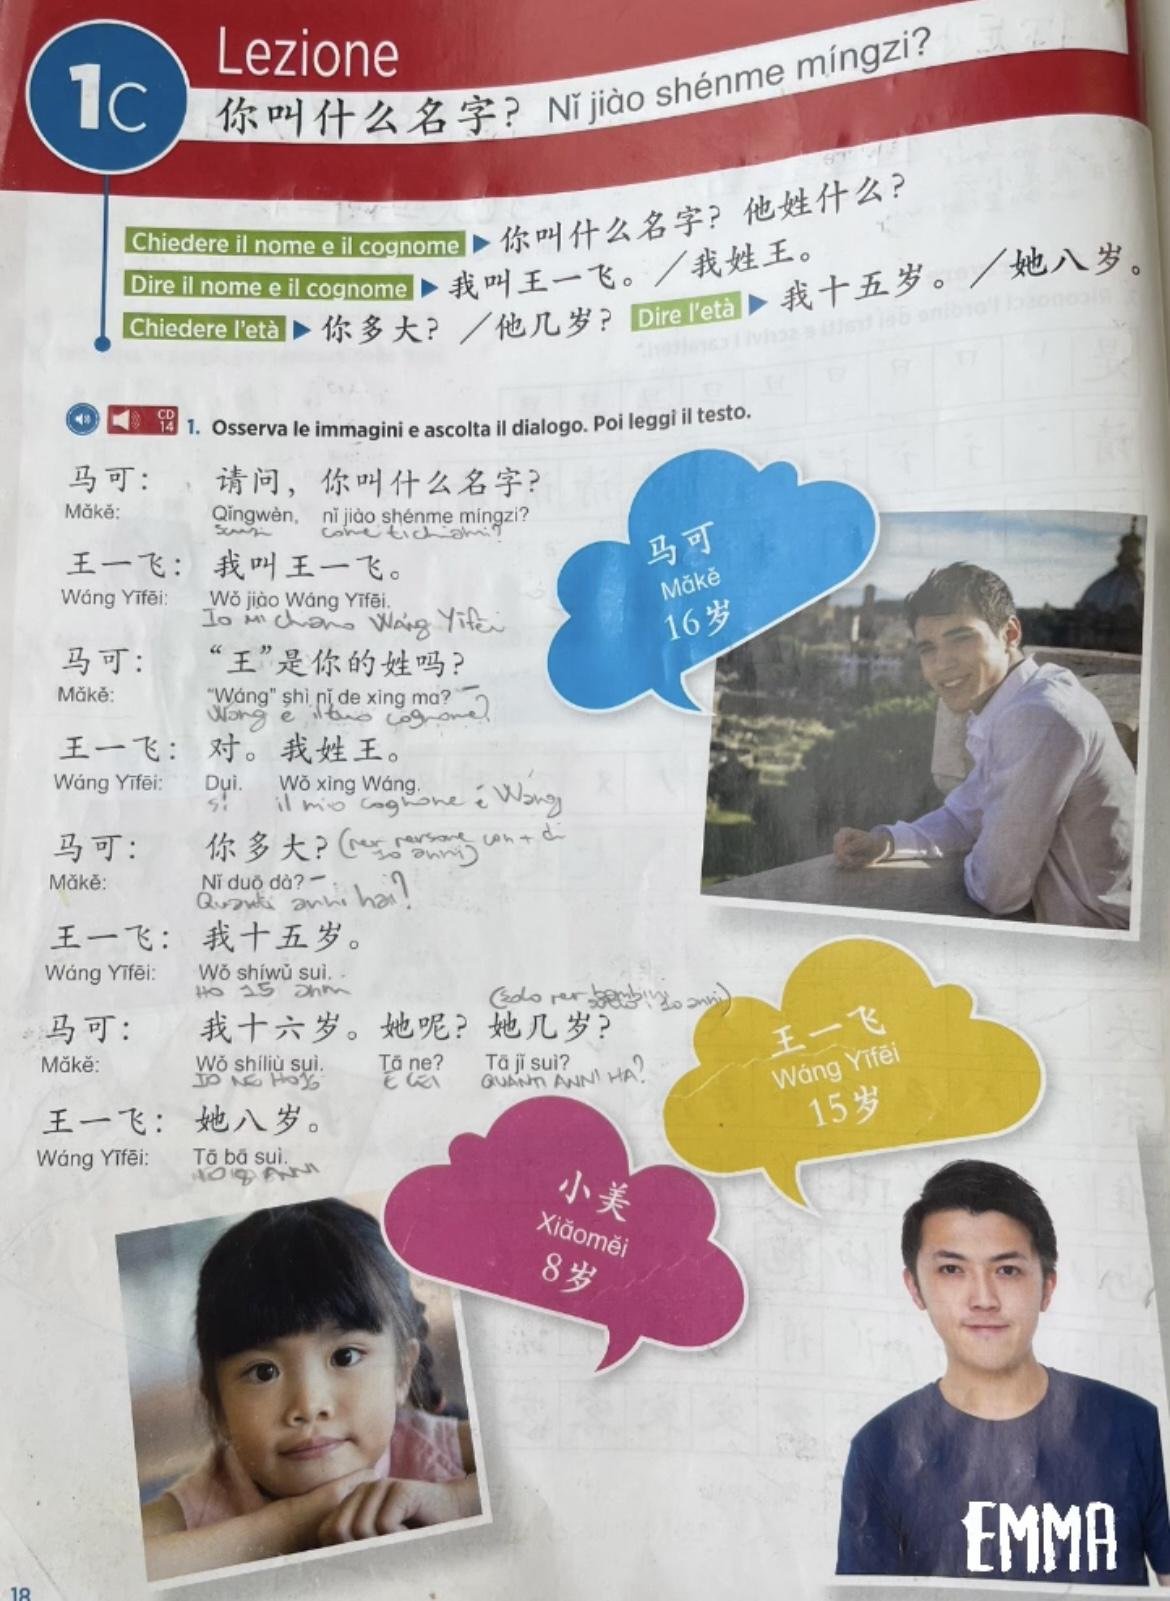 1C
Lezione
你叫什么名字？ Nǐ jiào shénme míngzi?
Chiedere il nome e il cognome ▶ 你叫什么名字？ 他姓什么？
Dire il nome e il cognome ▶ 我叫王一飞。／我姓王。
Chiedere l'età ▶ 你多大？ ／他几岁？ Dire l'età ▶ 我十五岁。／她八岁。
CD 14 1. Osserva le immagini e ascolta il dialogo. Poi leggi il testo.
马可： 请问，你叫什么名字？
Mǎkě: Qǐngwèn, nǐ jiào shénme míngzi?
scusi come ti chiami?
王一飞： 我叫王一飞。
Wáng Yīfēi: Wǒ jiào Wáng Yīfēi.
Io mi chiamo Wáng Yīfēi
马可： “王”是你的姓吗？
Mǎkě: "Wáng" shì nǐ de xìng ma?
Wang è il tuo cognome?
王一飞： 对。我姓王。
Wáng Yīfēi: Duì. Wǒ xìng Wáng.
sì il mio cognome è Wáng
马可： 你多大？ (per persone con + di 10 anni)
Mǎkě: Nǐ duō dà?
Quanti anni hai?
王一飞： 我十五岁。
Wáng Yīfēi: Wǒ shíwǔ suì.
Ho 15 anni
(solo per bambini 10 anni)
马可： 我十六岁。她呢？她几岁？
Mǎkě: Wǒ shíliù suì. Tā ne? Tā jǐ suì?
IO NE HO 16 E LEI QUANTI ANNI HA?
王一飞： 她八岁。
Wáng Yīfēi: Tā bā suì.
HO 8 ANNI
马可
Mǎkě
16岁
王一飞
Wáng Yīfēi
15岁
小美
Xiǎoměi
8岁
EMMA
18